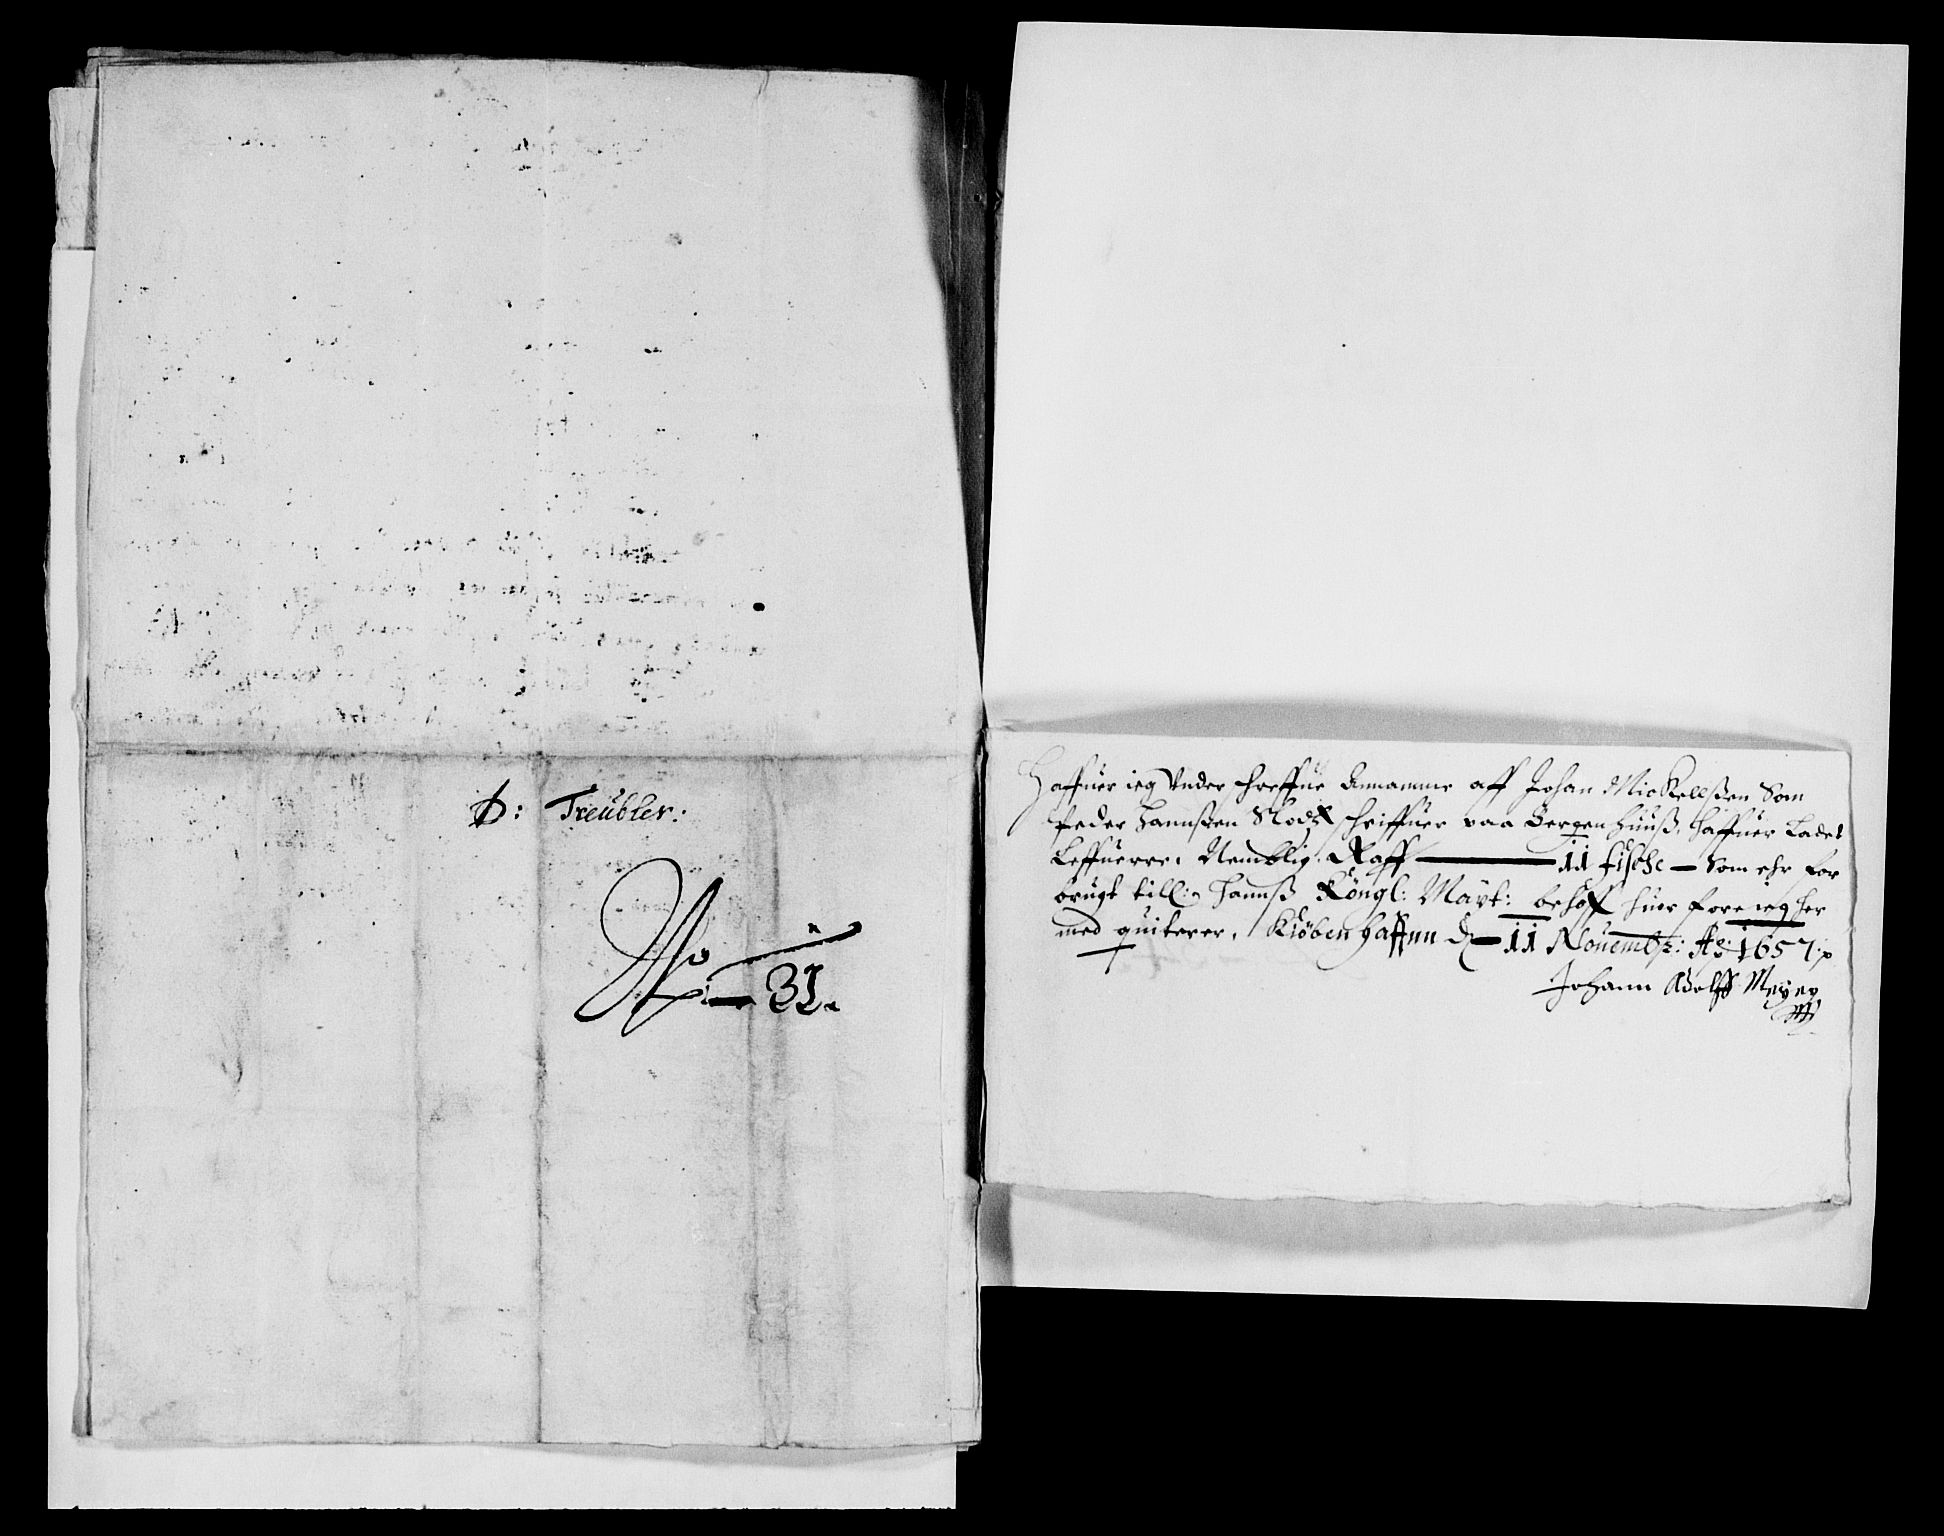 D: Treubler:
No 31.
Haffuer ieg Vnder schreffue Annamme aff Johan Mickellßen Som
Peder Hannßen Slodz schriffuer paa Bergen huuß, haffuer Ladet
Leffuerre, Nemblig, Raff — 11 fische — Som ehr for
brugt till: Hannß Köngl: Mayt: behoff huer fore ieg her
med quiterer, Kiöbenhaffnn d — 11 Nouembr: Ao: 1657:
Johann Adolff Meyer